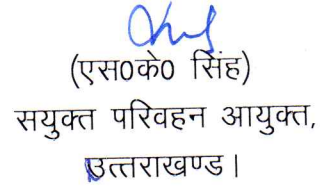 (एस0के0 सिंह)
सयुक्त परिवहन आयुक्त,
उत्तराखण्ड।